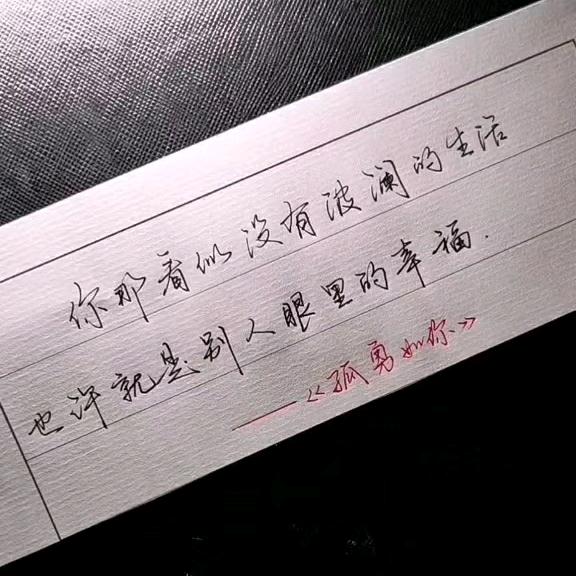 你那看似没有波澜的生活
也许就是别人眼里的幸福.
——《孤勇如你》